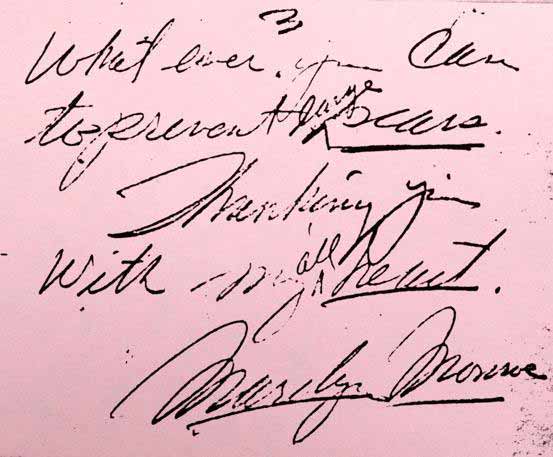 3
What ever you can
to prevent large scars.
Thanking you
with my all heart.
Marilyn Monroe